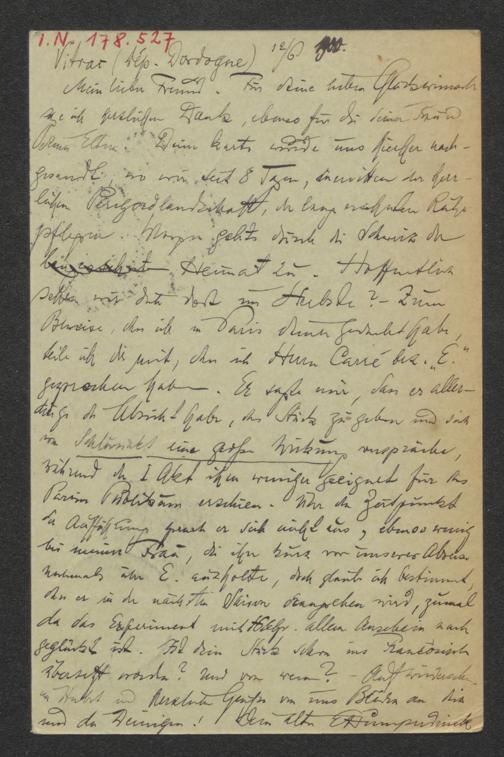 I.N. 178.527
Vitrac (Dép. Dordogne) 12/6 900.
Mein lieber Freund. Für deine lieben Glückwünsche
sage ich herzlichen Dank, ebenso für die deiner Frau und
Eltern. Deine Karte wurde uns hierher nach-
gesandt, wo wir seit 8 Tagen, inmitten der herr-
lichen Perigordlandschaft, der lang ersehnten Ruhe
pflegen. Morgen gehts durch die Schweiz der
Heimat zu. Hoffentlich
sehen wir dich dort im Herbste? – Zum
Beweise, dass ich in Paris deiner gedacht habe,
teile ich dir mit, dass ich Herrn Carré bez. „E."
gesprochen habe. Er sagte mir, dass er aller-
dings die Absicht habe, das Stück zu geben und sich
vom Schlussakt eine grosse Wirkung verspräche,
während der I Akt ihm weniger geeignet für das
Pariser Publikum erschien. Über den Zeitpunkt
der Aufführung sprach er sich nicht aus, ebenso wenig
bei meiner Frau, die ihn kurz vor unserer Abreise
nochmals über E. ausholte, doch glaube ich bestimmt,
dass er in der nächsten Saison drangehen wird, zumal
da das Experiment mit allem Anschein nach
geglückt ist. Ist dein Stück schon ins Französische
übersetzt worden? Und von wem? – Auf
und herzliche Grüsse von uns Beiden an dich
und die Deinigen! Dein alter EHumperdinck